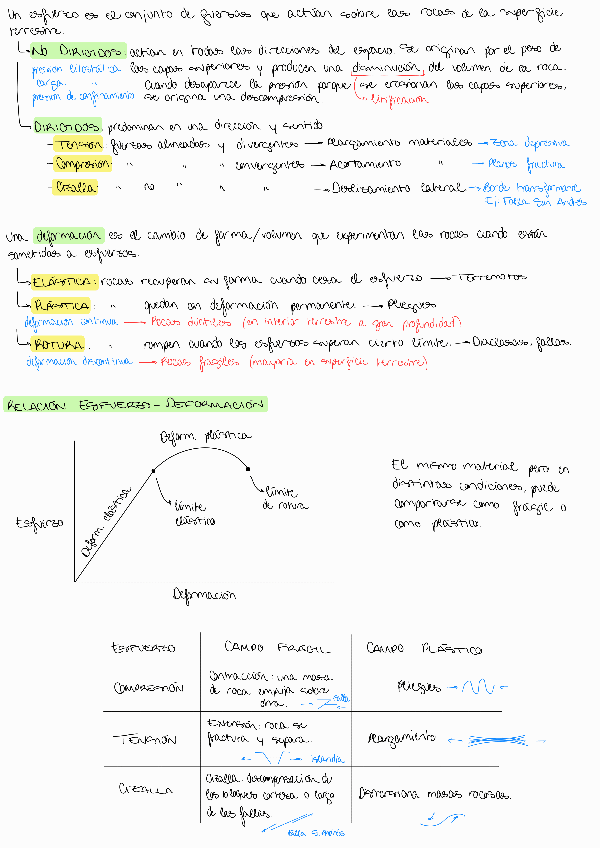 Un esfuerzo es el conjunto de fuerzas que actúan sobre las rocas de la superficie
terrestre.
NO DIRIGIDOS: actúan en todas las direcciones del espacio. Se originan por el peso de
presión litostática las capas superiores y producen una disminución del volumen de la roca.
carga Cuando desaparece la presión porque se erosionan las capas superiores,
presión de confinamiento se origina una descompresión. Litificación
DIRIGIDOS: predominan en una dirección y sentido
- TENSIÓN: fuerzas alineadas y divergentes → Alargamiento materiales → Zona depresiva
- Compresión: " " convergentes → Acortamiento " → Planos fractura
- Cizalla: " no " " → Deslizamiento lateral → Borde transformante
Ej: Falla San Andrés
Una deformación es el cambio de forma/volumen que experimentan las rocas cuando están
sometidas a esfuerzos.
ELÁSTICA: rocas recuperan su forma cuando cesa el esfuerzo → Terremotos
PLÁSTICA: " quedan con deformación permanente. → Pliegues
deformación continua → Rocas dúctiles (en interior terrestre a gran profundidad)
ROTURA: " rompen cuando los esfuerzos superan cierto límite. → Diaclasas, fallas.
deformación discontinua → Rocas frágiles (mayoría en superficie terrestre)
RELACIÓN ESFUERZO - DEFORMACIÓN
Deform. plástica
Esfuerzo
Deform. elástica
límite
elástico
límite
de rotura
Deformación
El mismo material pero en
distintas condiciones, puede
comportarse como frágil o
como plástico.
ESFUERZO CAMPO FRÁGIL CAMPO PLÁSTICO
COMPRESIÓN
Contracción: una masa
de roca empuja sobre
otra. falla
Pliegues
TENSIÓN
Extensión: roca se
fractura y separa.
Islandia
Alargamiento
CIZALLA
Cizalla: descompensación de
los bloques corteza a largo
de las fallas
falla S. Andrés
Distorsiona masas rocosas.